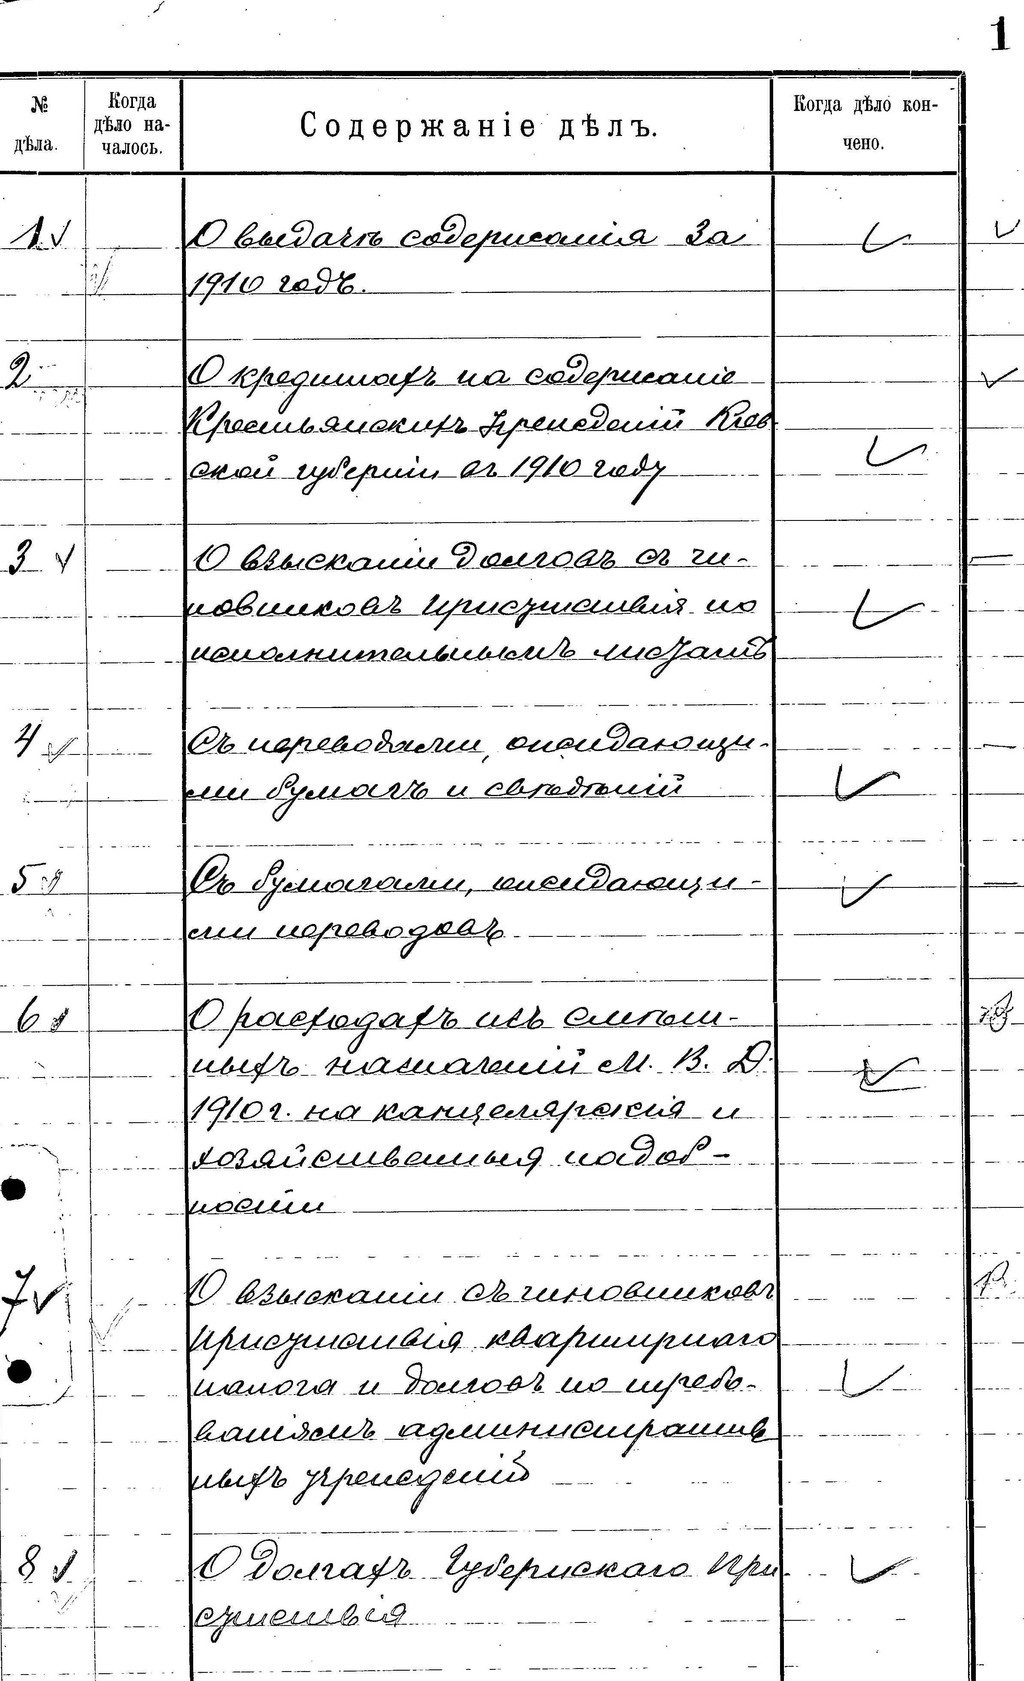 1
№ дѣла.
Когда дѣло на-
чалось.
Содержаніе дѣлъ.
Когда дѣло кон-
чено.
1 О выдачѣ содержанія за
1910 годъ.
2 О кредитахъ на содержаніе
Крестьянскихъ Учрежденій Кіев
ской губерніи въ 1910 году
3 О взысканіи долговъ съ чи-
новниковъ Присутствія по
исполнительнымъ листамъ
4 Съ переводами, ожидающи-
ми бумагъ и свѣдѣній
5 Съ бумагами, ожидающи-
ми переводовъ
6 О расходахъ изъ смѣт-
ныхъ назначеній М. В. Д.
1910 г. на канцелярскія и
хозяйственныя надоб-
ности
7 О взысканіи съ чиновниковъ
Присутствія квартирнаго
налога и долговъ по требо-
ваніямъ административ
ныхъ учрежденій
8 О долгахъ Губернскаго При
сутствія